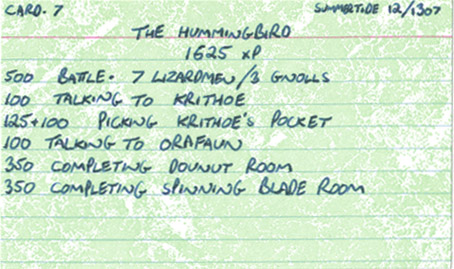 CARD. 7 SUMMERTIDE 12/1307
THE HUMMINGBIRD
1625 XP
500 BATTLE. 7 LIZARDMEN/3 GNOLLS
100 TALKING TO KRITHOE
125+100 PICKING KRITHOE'S POCKET
100 TALKING TO ORAFAUN
350 COMPLETING DOUNUT ROOM
350 COMPLETING SPINNING BLADE ROOM